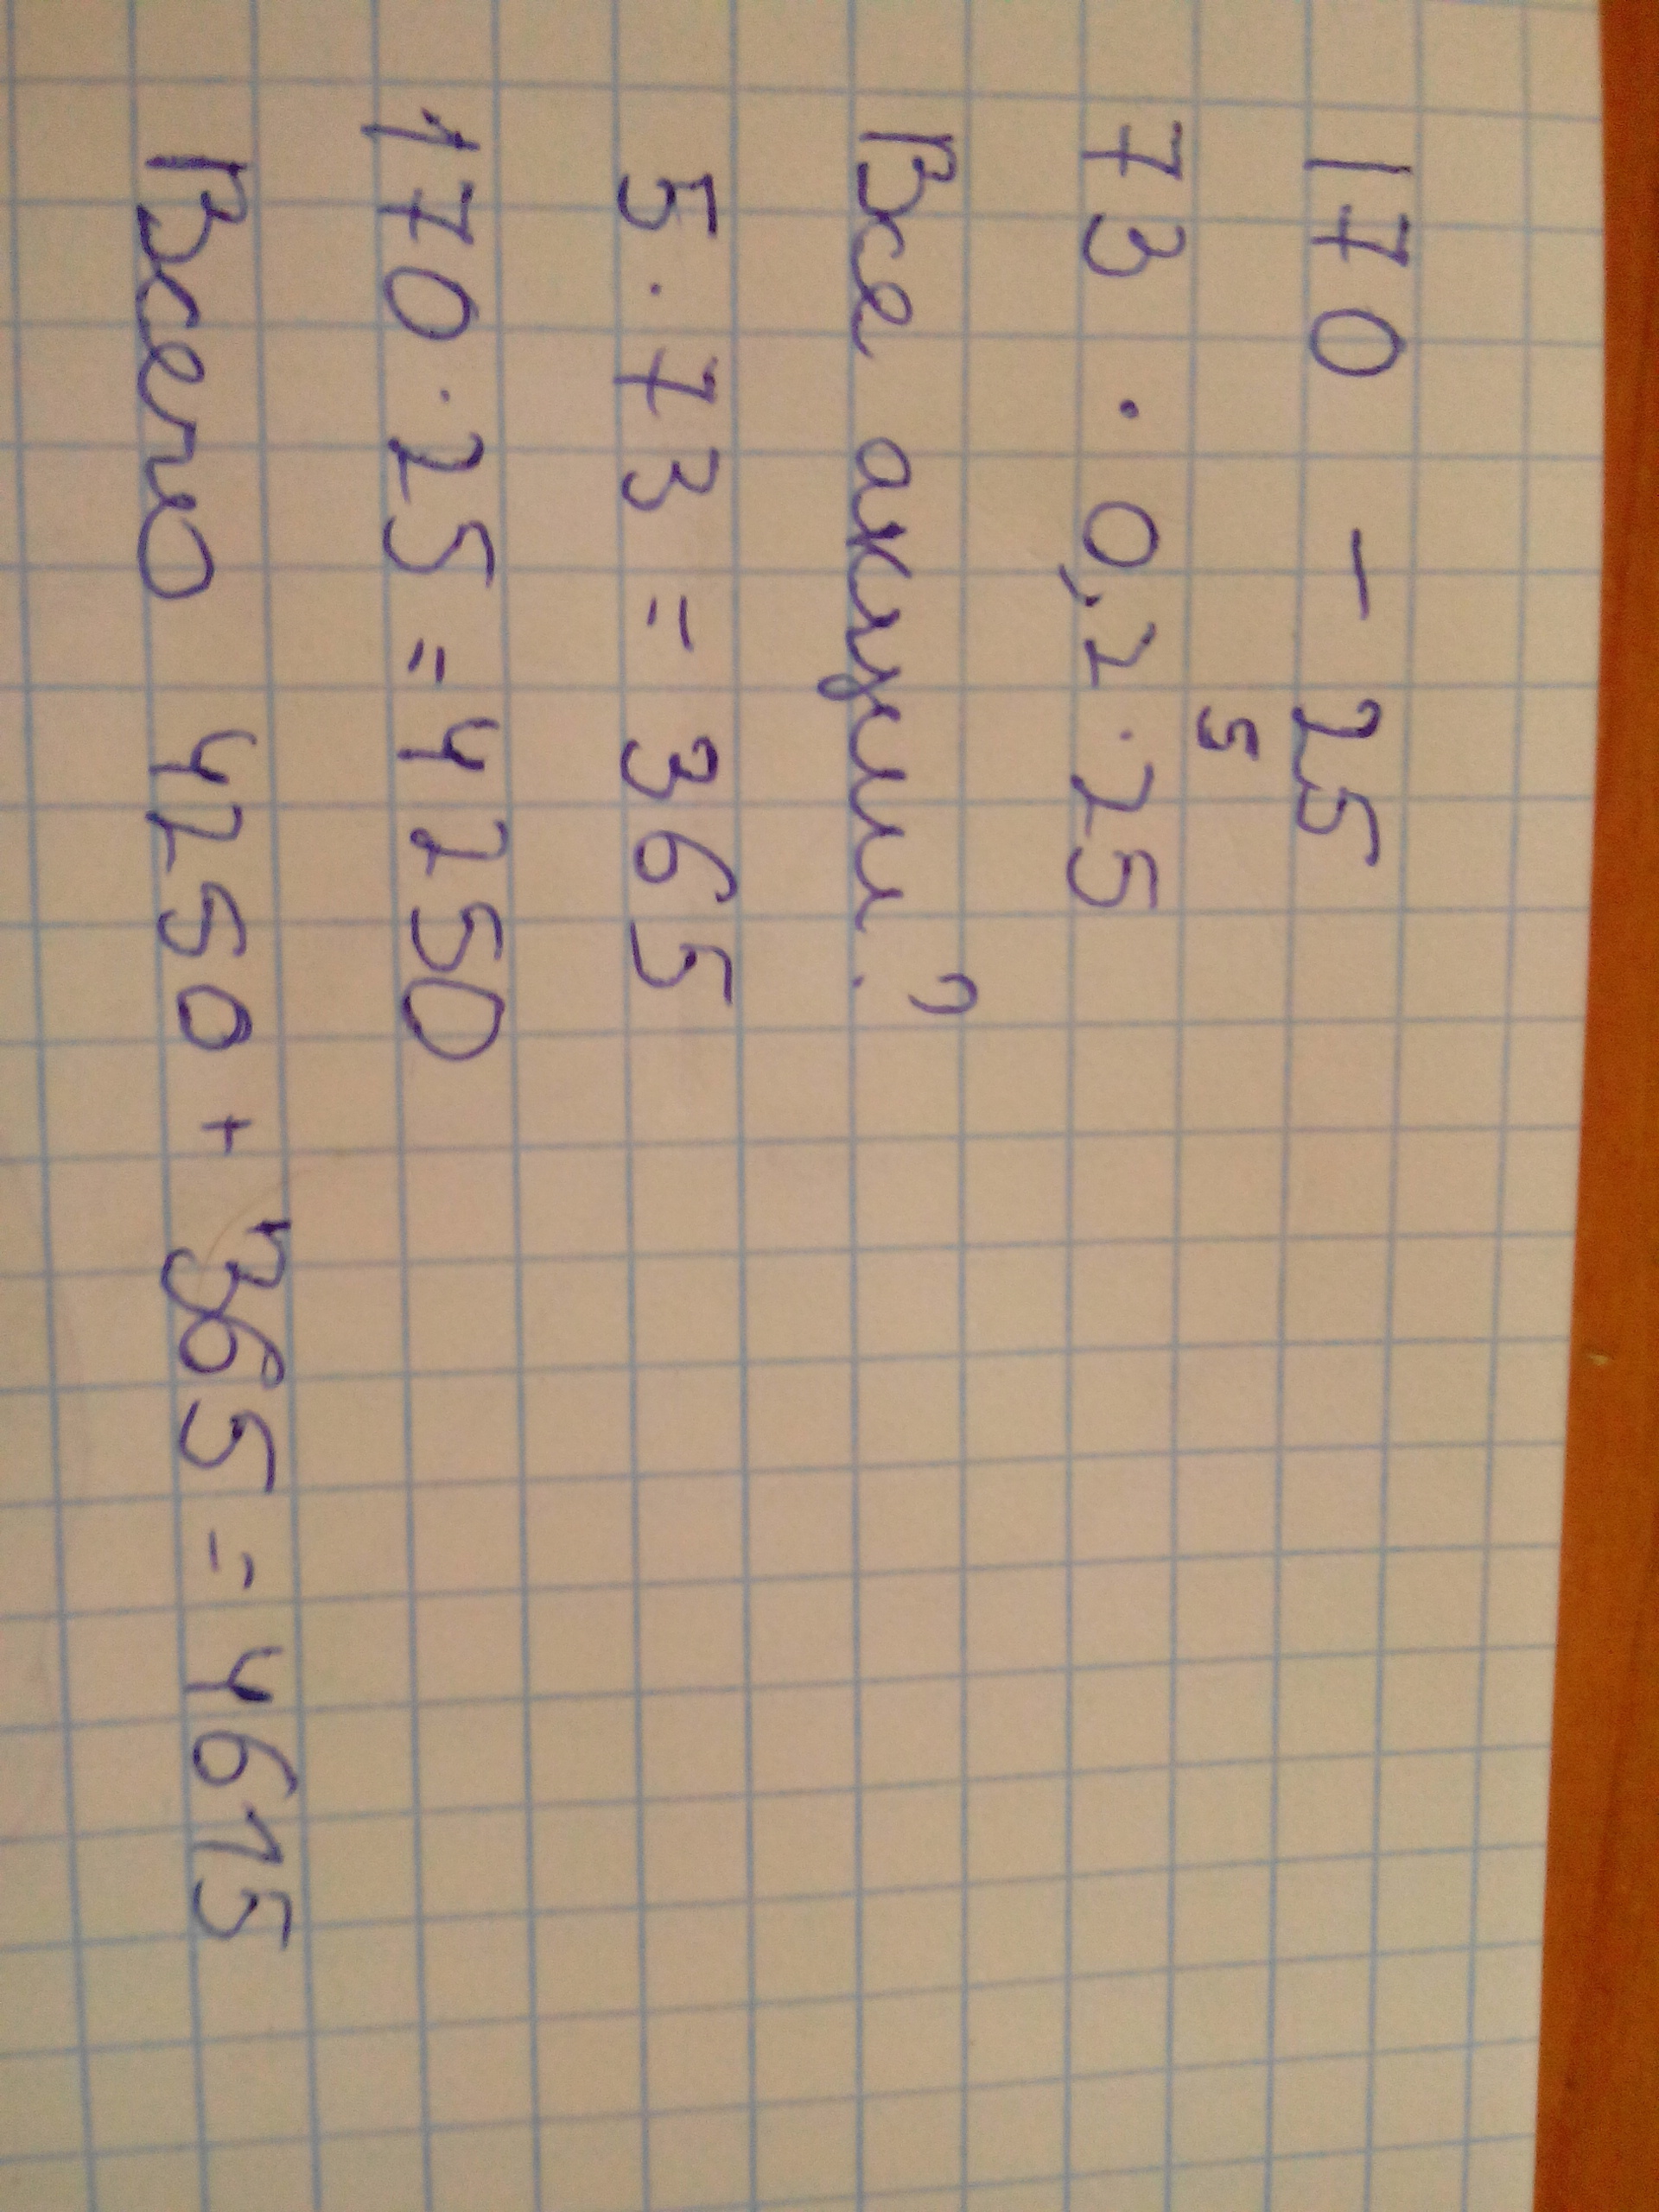 170 - 25
5
73 · 0,2 · 25
Все акции?
5 · 73 = 365
170 · 25 = 4250
Всего 4250 + 365 = 4615